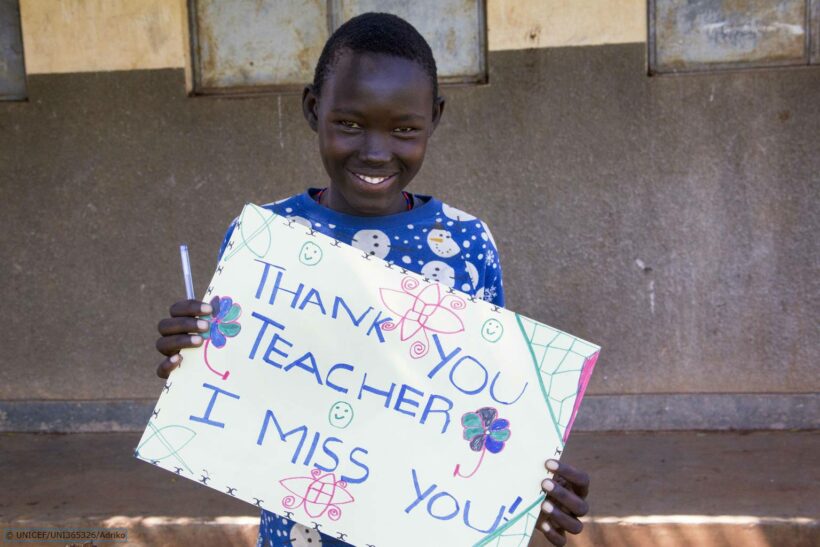 THANK YOU
TEACHER
I MISS YOU!
© UNICEF/UNI365326/Adriko